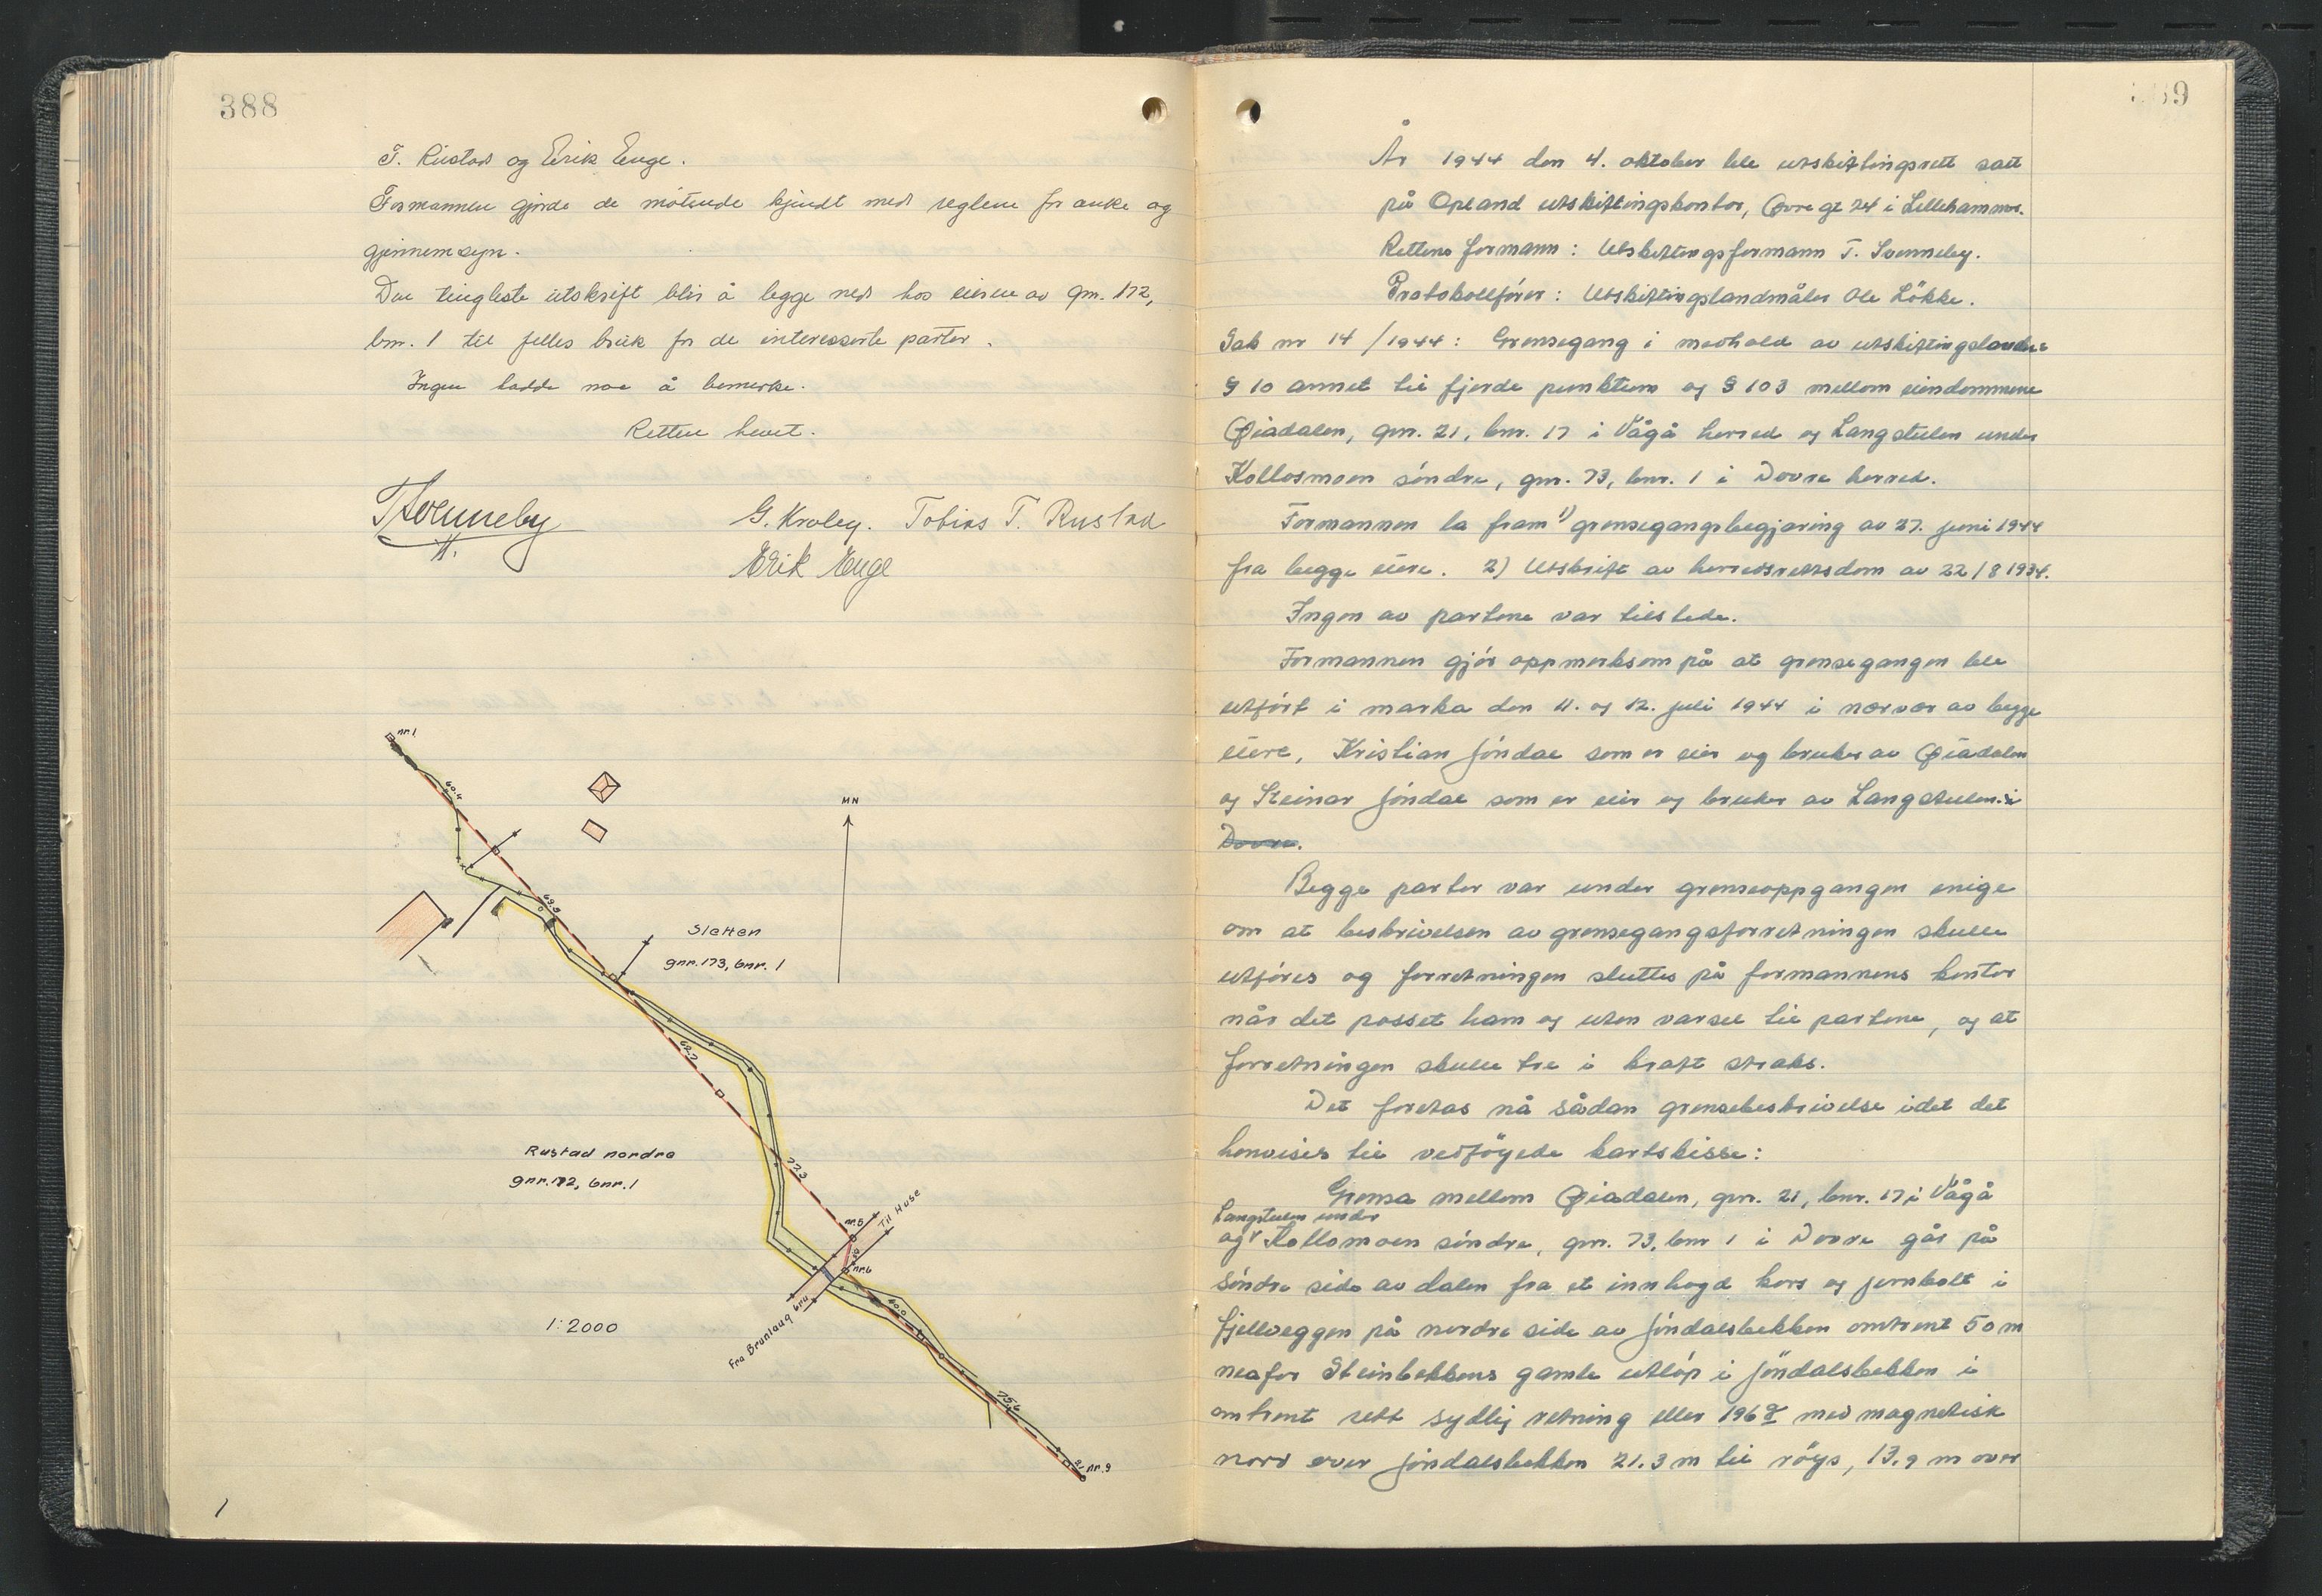 388
T. Rustad og Erik Enge.
Formannen gjorde de møtende kjendt med reglene for anke og
gjennemsyn.
Den tingleste utskrift blir å legge ned hos eieren av gnr. 172,
bnr. 1 til felles bruk for de interesserte parter.
Ingen hadde noe å bemerke.
Retten hevet.
T. Svenneby
G. Kroley. Tobias T. Rustad
Erik Enge
nr.1
60.4
69.9
MN
Sletten
gnr. 173, bnr. 1
69.7
Rustad nordre
gnr. 172, bnr. 1
77.3
nr.5
Til Huse
nr.6
Fra Brunlaug bru
40.0
1:2000
75.6
nr.9
1
År 1944 den 4. oktober ble utskiftingsrett satt
på Opland utskiftingskontor, Øvre gt 24 i Lillehammer.
Rettens formann: Utskiftingsformann T. Svenneby.
Protokollfører: Utskiftingslandmåler Ole Løkke.
Sak nr 14/1944: Grensegang i medhold av utskiftingslovens
§ 10 annet til fjerde punktum og § 103 mellom eiendommene
Øiadalen, gnr. 21, bnr. 17 i Vågå herred og Langstulen under
Kollosmoen søndre, gnr. 73, bnr. 1 i Dovre herred.
Formannen la fram 1) grensegangsbegjæring av 27. juni 1944
fra begge eiere. 2) Utskrift av herredsrettsdom av 22/8 1934.
Ingen av partene var tilstede.
Formannen gjør oppmerksom på at grensegangen ble
utført i marka den 11. og 12. juli 1944 i nærvær av begge
eiere, Kristian Jøndal som er eier og bruker av Øiadalen
og Steinar Jøndal som er eier og bruker av Langstulen. i
Dovre.
Begge parter var under grenseoppgangen enige
om at beskrivelsen av grensegangsforretningen skulle
utføres og forretningen sluttes på formannens kontor
når det passet ham og uten varsel til partene, og at
forretningen skulle tre i kraft straks.
Det foretas nå sådan grensebeskrivelse idet det
henvises til vedføyede kartskisse:
Grensa mellom Øiadalen, gnr. 21, bnr. 17 i Vågå
Langstulen under
og Kollomoen søndre, gnr. 73, bnr 1 i Dovre går på
søndre side av dalen fra et innhogd kors og jernbolt i
fjellveggen på nordre side av Jøndalsbekken omtrent 50 m
neafor Steinbekkens gamle utløp i Jøndalsbekken i
omtrent rett sydlig retning eller 196 g med magnetisk
nord over Jøndalsbekken 21.3 m til røys, 13.9 m over